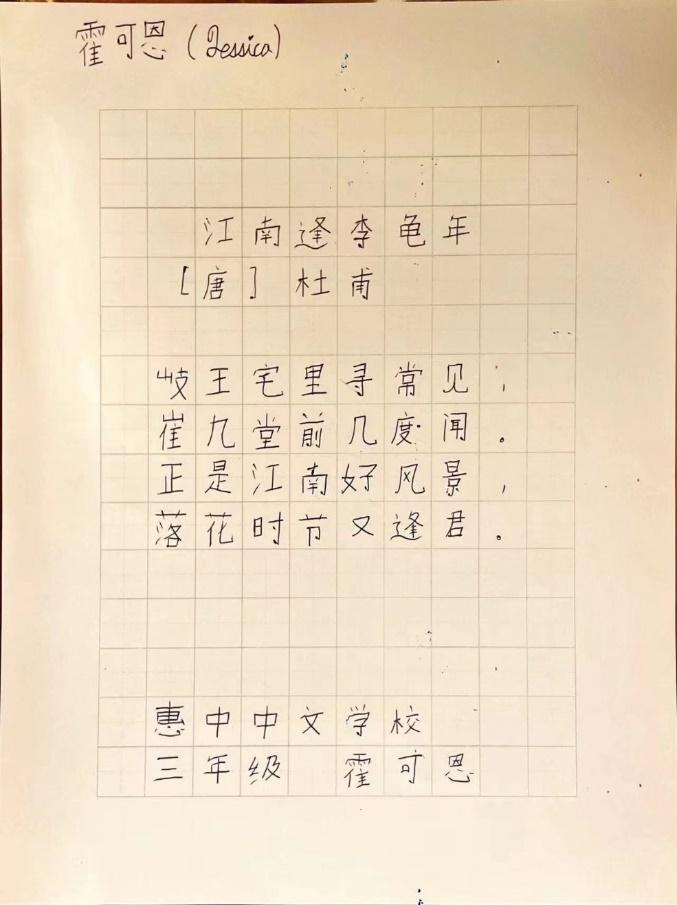 霍可恩 (Jessica)
江南逢李龟年
[唐] 杜甫
岐王宅里寻常见，
崔九堂前几度闻。
正是江南好风景，
落花时节又逢君。
惠中中文学校
三年级 霍可恩